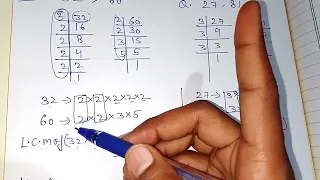 60
Q. 27, 81
2 | 32
2 | 16
2 | 8
2 | 4
2 | 2
1
2 | 60
2 | 30
3 | 15
5 | 5
1
3 | 27
3 | 9
3 | 3
1
32 → 2 × 2 × 2 × 2 × 2
60 → 2 × 2 × 3 × 5
27 →
L.C.M of (32